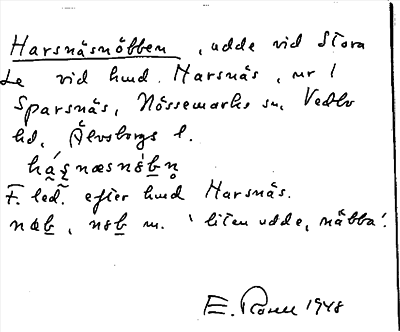 Harsnäsnöbben, udde vid Stora
Le vid hmd. Harsnäs, nr 1
Sparsnäs, Nössemarks sn, Vedbo
hd, Älvsborgs l.
F. led. efter hmd Harsnäs.
m. 'liten udde, näbba'.
E. 1948